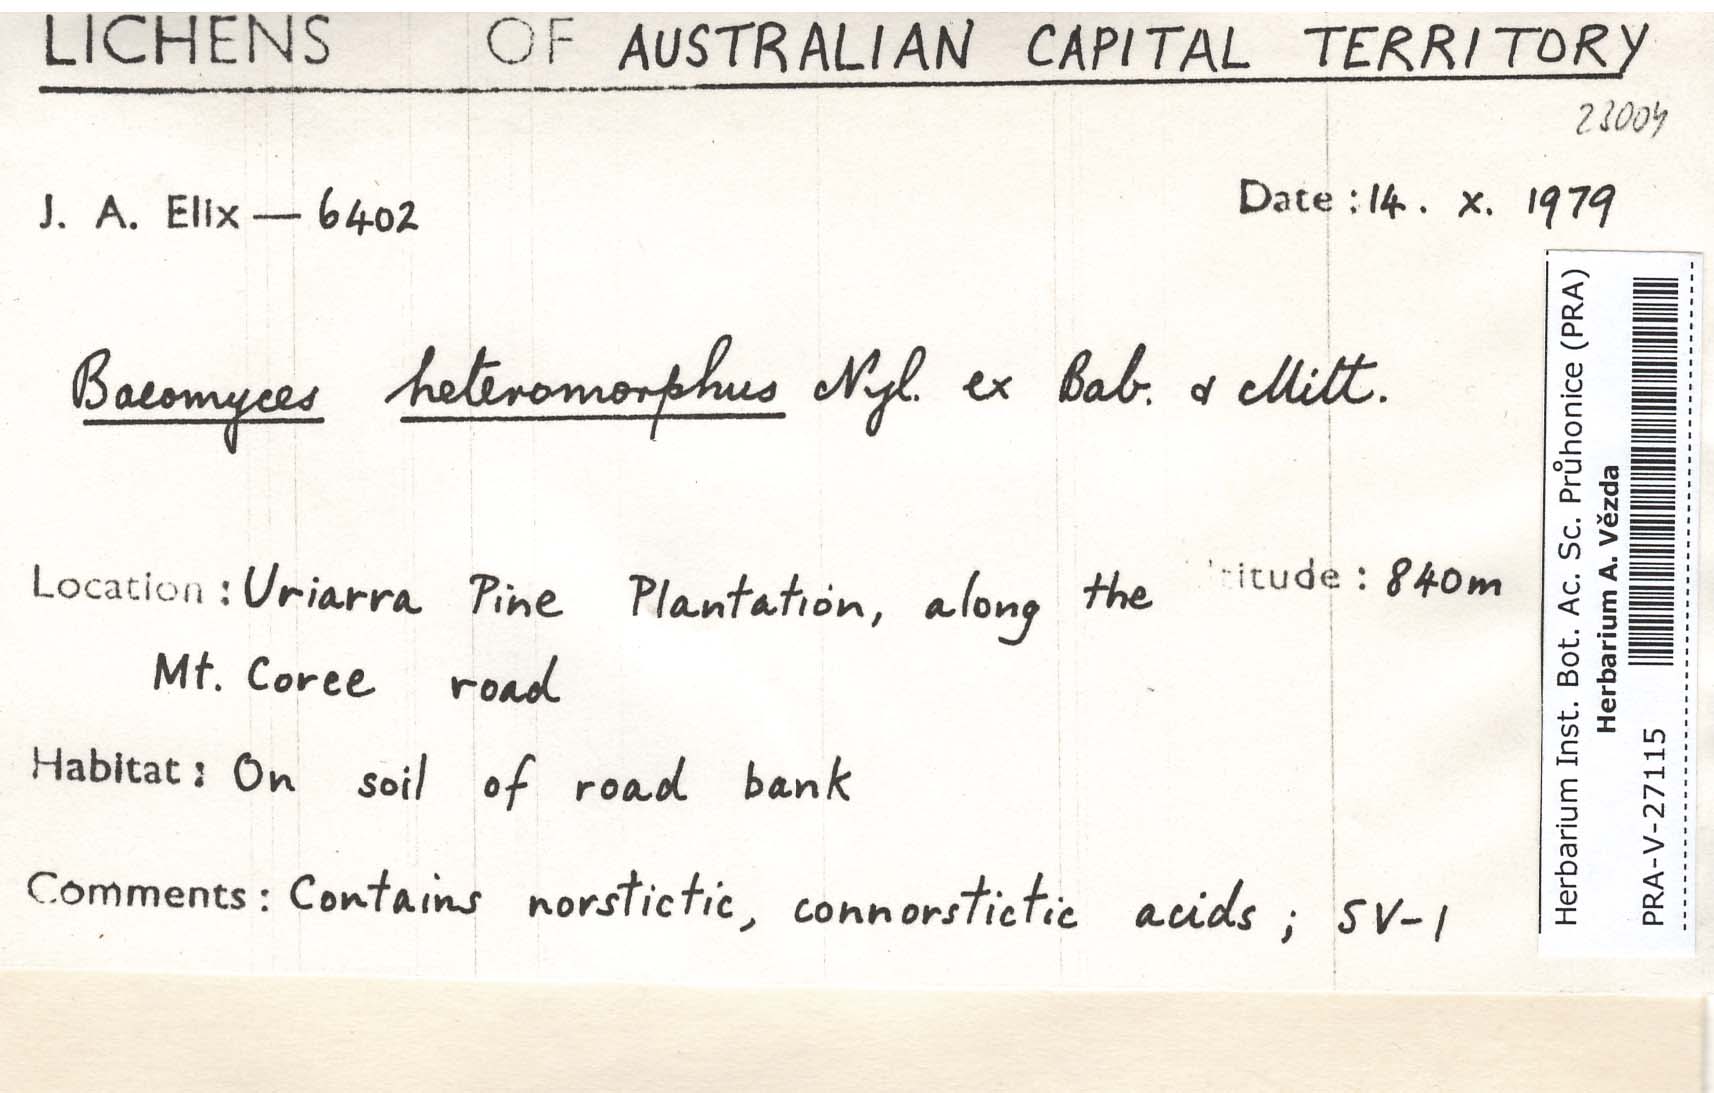 LICHENS OF AUSTRALIAN CAPITAL TERRITORY
23004
J. A. Elix — 6402
Date : 14 . x. 1979
Baeomyces heteromorphus Nyl. ex Bab. & Mitt.
Location : Uriarra Pine Plantation, along the
itude : 840m
Mt. Coree road
Habitat : On soil of road bank
Comments : Contains norstictic, connorstictic acids ; SV-1
Herbarium Inst. Bot. Ac. Sc. Průhonice (PRA)
Herbarium A. Vězda
PRA-V-27115